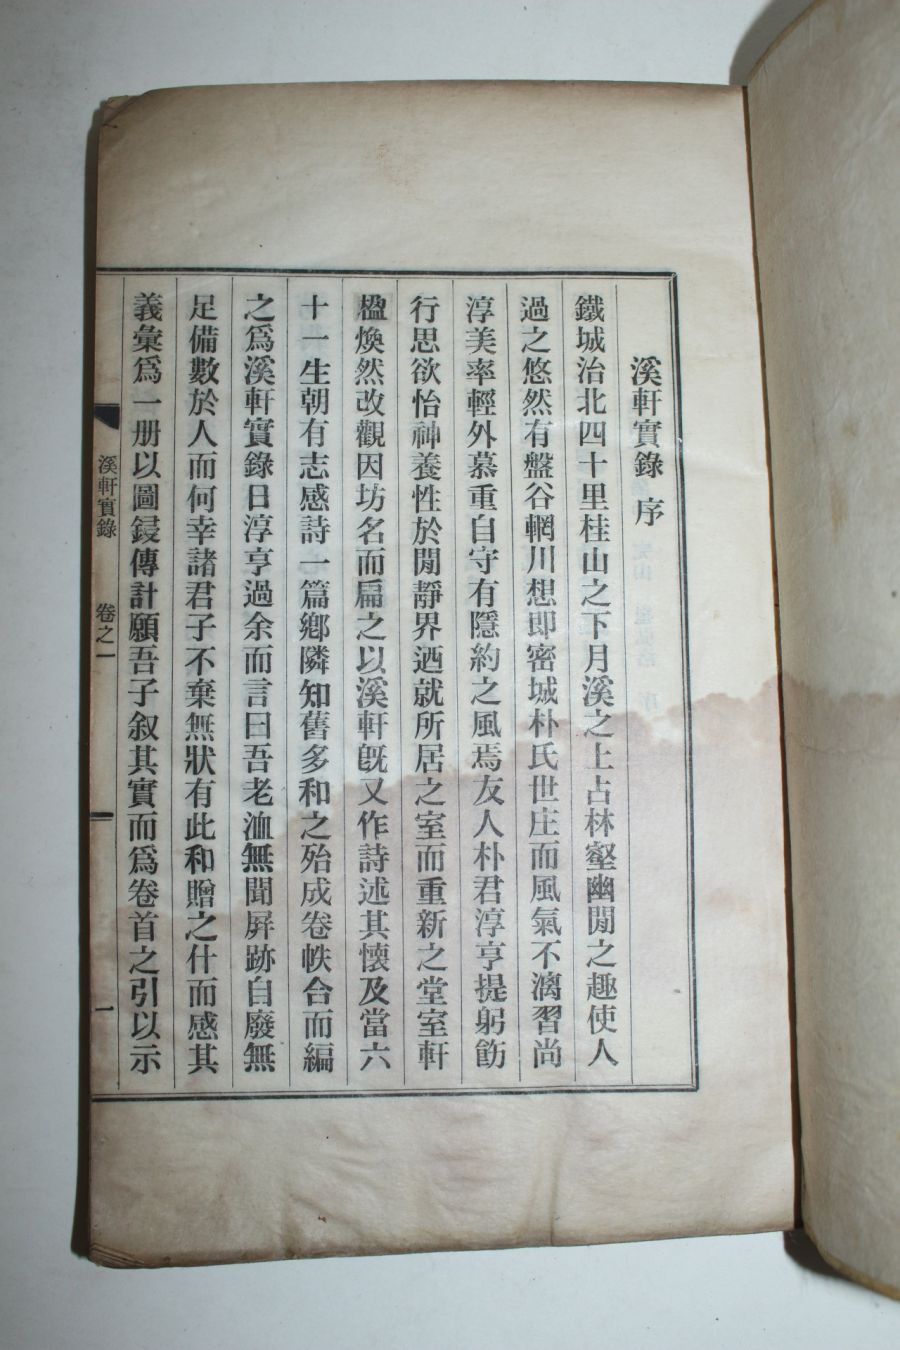 溪軒實錄 序
鐵城治北四十里桂山之下月溪之上占林壑幽閒之趣使人
過之悠然有盤谷輞川想即密城朴氏世庄而風氣不漓習尚
淳美率輕外慕重自守有隱約之風焉友人朴君淳亨提躬飭
行思欲怡神養性於閒靜界迺就所居之室而重新之堂室軒
楹煥然改觀因坊名而扁之以溪軒旣又作詩述其懷及當六
十一生朝有志感詩一篇鄉隣知舊多和之殆成卷帙合而編
之爲溪軒實錄日淳亨過余而言曰吾老洫無聞屛跡自廢無
足備數於人而何幸諸君子不棄無狀有此和贈之什而感其
義彙爲一册以圖鋟傳計願吾子叙其實而爲卷首之引以示
溪軒實錄 卷之一 一